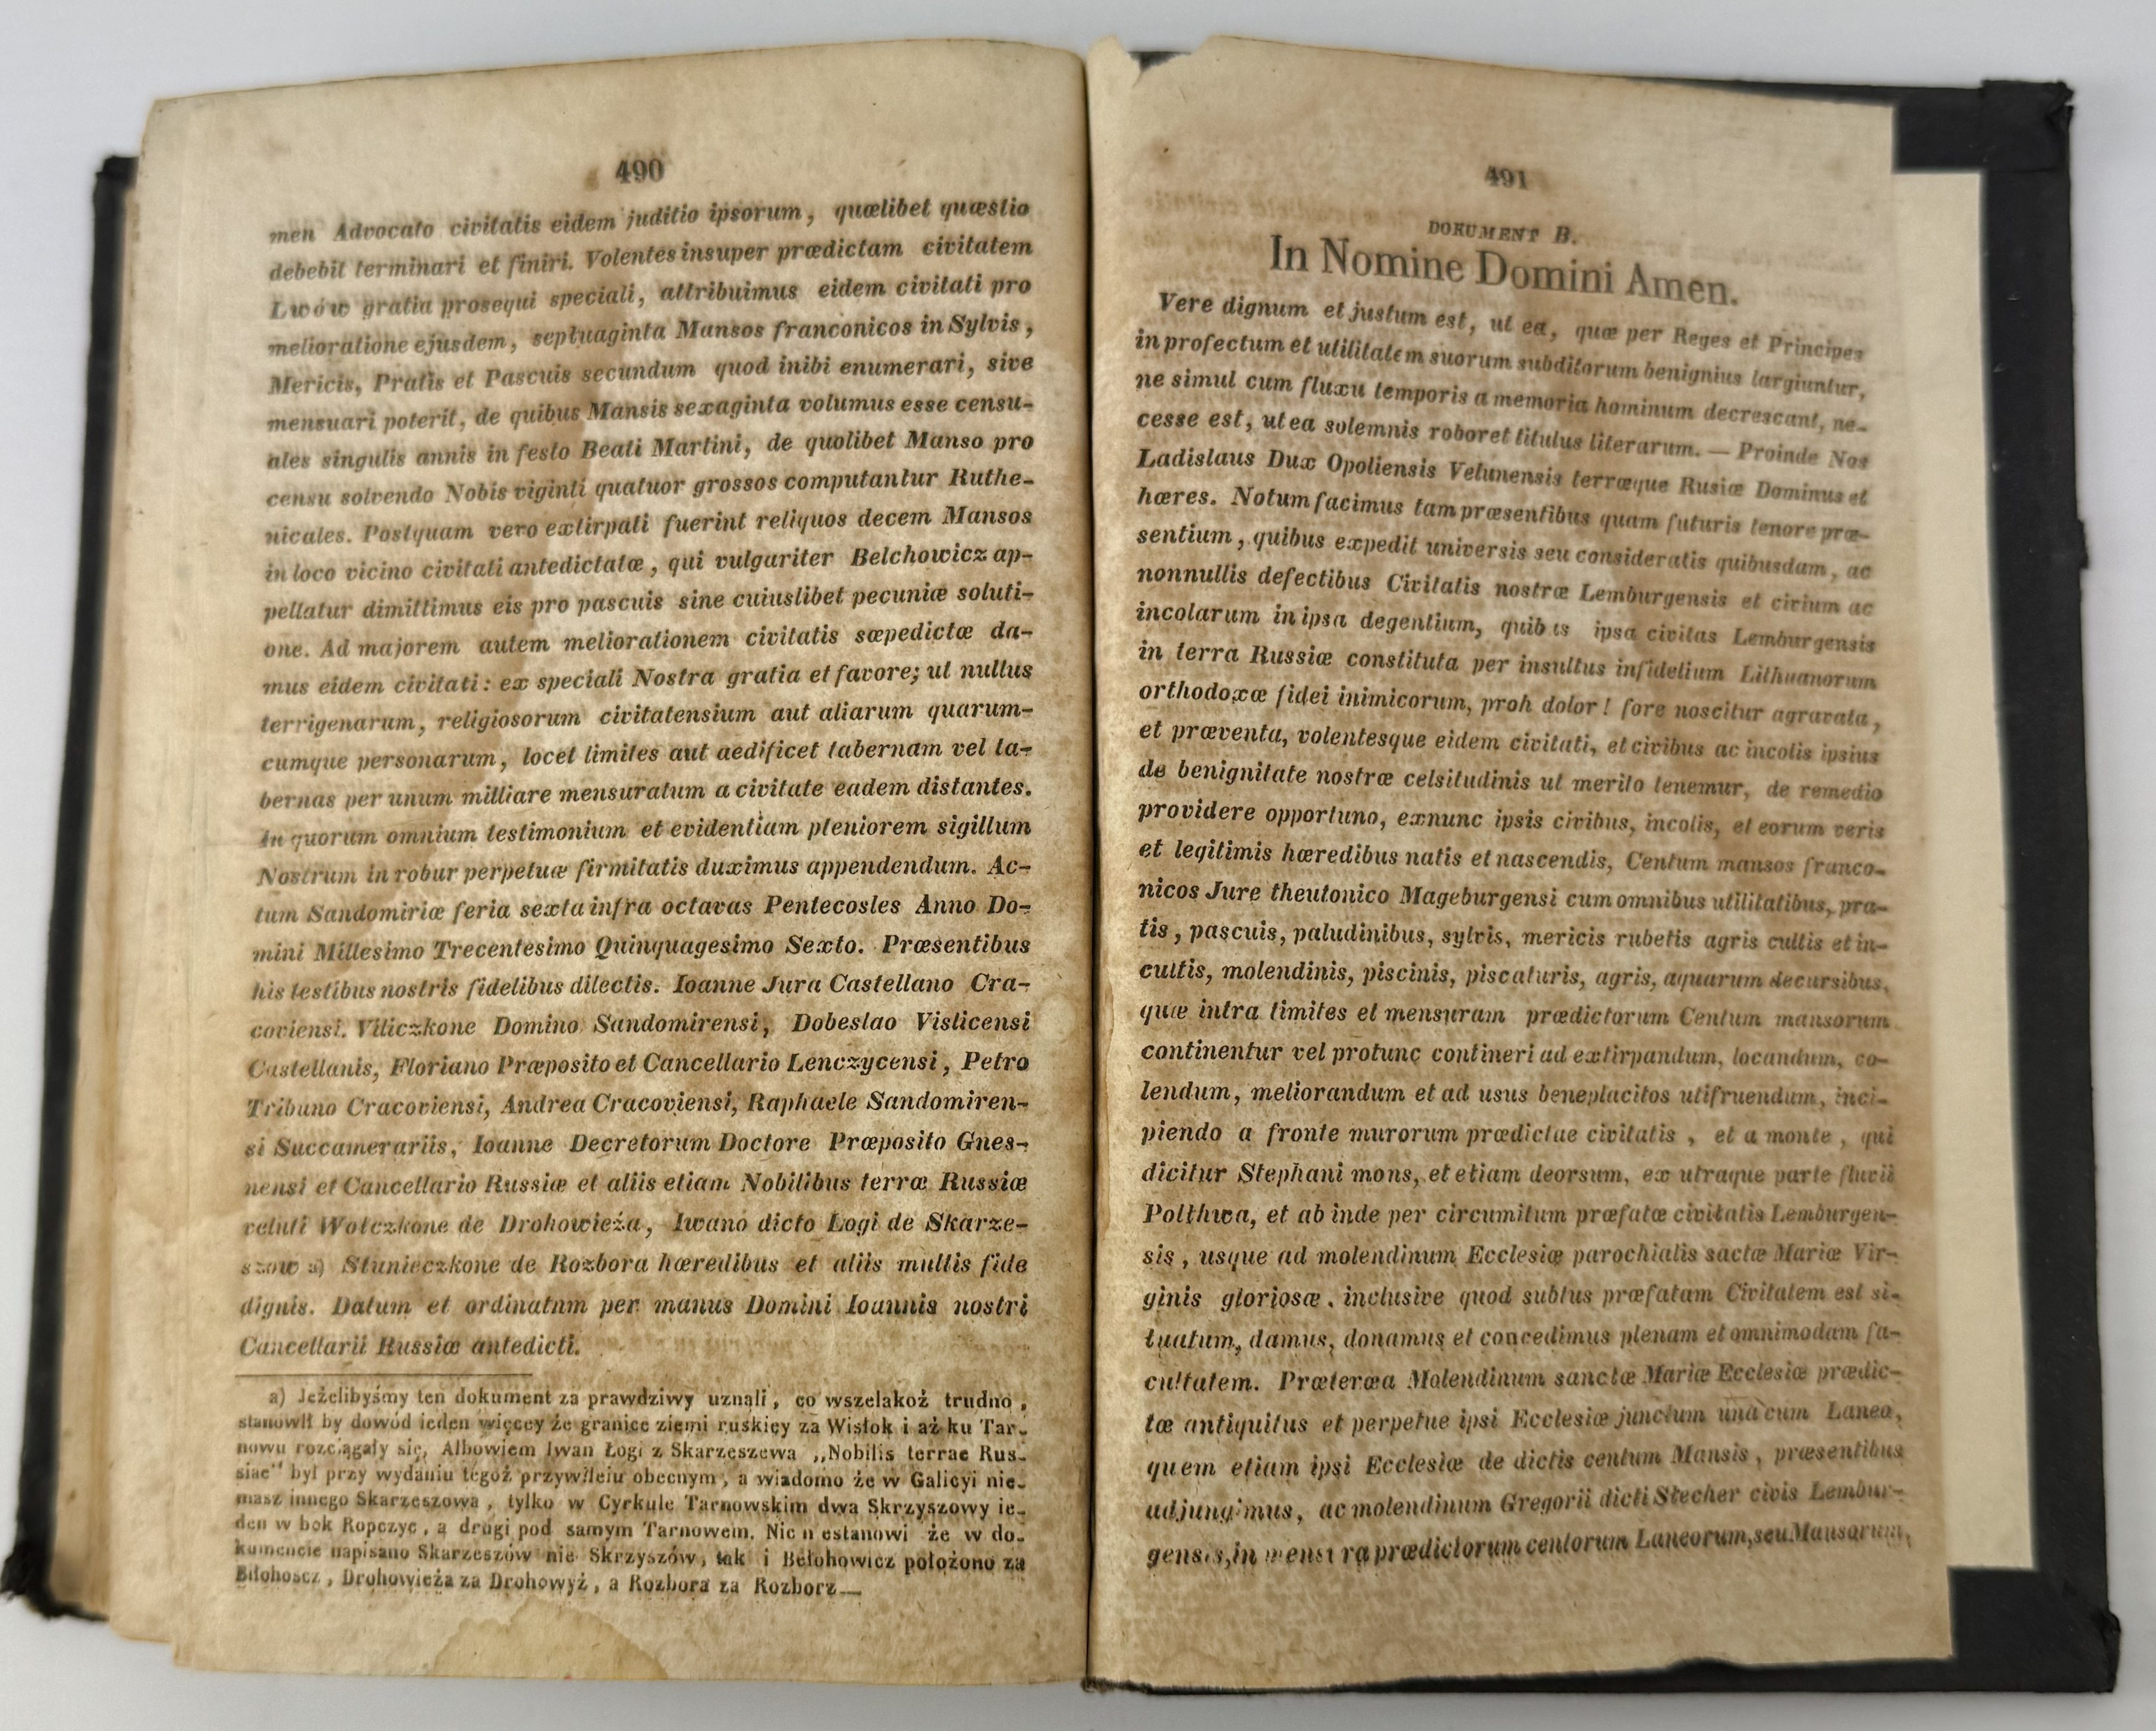 490
men Advocato civitatis eidem juditio ipsorum, quœlibet quœstio
debebit terminari et finiri. Volentes insuper prœdictam civitatem
Lwów gratia prosequi speciali, attribuimus eidem civitati pro
melioratione ejusdem, septuaginta Mansos franconicos in Sylvis,
Mericis, Pratis et Pascuis secundum quod inibi enumerari, sive
mensuari poterit, de quibus Mansis sexaginta volumus esse censu-
ales singulis annis in festo Beati Martini, de quolibet Manso pro
censu solvendo Nobis viginti quatuor grossos computantur Ruthe-
nicales. Postquam vero extirpati fuerint reliquos decem Mansos
in loco vicino civitati antedictatœ, qui vulgariter Belchowicz ap-
pellatur dimittimus eis pro pascuis sine cuiuslibet pecuniœ soluti-
one. Ad majorem autem meliorationem civitatis sœpedictœ da-
mus eidem civitati: ex speciali Nostra gratia et favore; ut nullus
terrigenarum, religiosorum civitatensium aut aliarum quarum-
cumque personarum, locet limites aut aedificet tabernam vel ta-
bernas per unum milliare mensuratum a civitate eadem distantes.
In quorum omnium testimonium et evidentiam pleniorem sigillum
Nostrum in robur perpetuœ firmitatis duximus appendendum. Ac-
tum Sandomiriœ feria sexta infra octavas Pentecostes Anno Do-
mini Millesimo Trecentesimo Quinquagesimo Sexto. Prœsentibus
his testibus nostris fidelibus dilectis. Ioanne Jura Castellano Cra-
coviensi. Viliczkone Domino Sandomirensi, Dobeslao Vislicensi
Castellanis, Floriano Prœposito et Cancellario Lenczycensi, Petro
Tribuno Cracoviensi, Andrea Cracoviensi, Raphaele Sandomiren-
si Succamerariis, Ioanne Decretorum Doctore Prœposito Gnes-
nensi et Cancellario Russiœ et aliis etiam Nobilibus terrœ Russiœ
veluti Wolczkone de Drohowieża, Iwano dicto Łogi de Skarze-
szow a) Stunieczkone de Rozbora hœredibus et aliis multis fide
dignis. Datum et ordinatnm per manus Domini Ioannis nostri
Cancellarii Russiœ antedicti.
a) Jeżelibyśmy ten dokument za prawdziwy uznali, co wszelakoż trudno,
stanowił by dowód ieden więcey że granice ziemi ruskiey za Wisłok i aż ku Tar-
nowu rozciągały się, Albowiem Iwan Łogi z Skarzeszewa „Nobilis terrae Rus-
siae" był przy wydaniu tegoż przywileiu obecnym, a wiadomo że w Galicyi nie-
masz innego Skarzeszowa, tylko w Cyrkule Tarnowskim dwa Skrzyszowy ie-
den w bok Ropczyc, a drugi pod samym Tarnowem. Nic n estanowi że w do-
kumencie napisano Skarzeszów nie Skrzyszów, tak i Bełohowicz położono za
Biłohoscz, Drohowieża za Drohowyż, a Rozbora za Rozborz—
491
DOKUMENT B.
In Nomine Domini Amen.
Vere dignum et justum est, ut ea, quœ per Reges et Principes
in profectum et utilitatem suorum subditorum benignius largiuntur,
ne simul cum fluxu temporis a memoria hominum decrescant, ne-
cesse est, ut ea solemnis roboret titulus literarum. — Proinde Nos
Ladislaus Dux Opoliensis Velunensis terrœque Rusiœ Dominus et
hœres. Notum facimus tam prœsentibus quam futuris tenore prœ-
sentium, quibus expedit universis seu consideratis quibusdam, ac
nonnullis defectibus Civitatis nostrœ Lemburgensis et civium ac
incolarum in ipsa degentium, quib is ipsa civitas Lemburgensis
in terra Russiœ constituta per insultus infidelium Lithuanorum
orthodoxœ fidei inimicorum, proh dolor! fore noscitur agravata,
et prœventa, volentesque eidem civitati, et civibus ac incolis ipsius
de benignitate nostrœ celsitudinis ut merito tenemur, de remedio
providere opportuno, exnunc ipsis civibus, incolis, et eorum veris
et legitimis hœredibus natis et nascendis, Centum mansos franco-
nicos Jure theutonico Mageburgensi cum omnibus utilitatibus, pra-
tis, pascuis, paludinibus, sylvis, mericis rubetis agris cultis et in-
cultis, molendinis, piscinis, piscaturis, agris, aquarum decursibus,
quœ intra limites et mensuram prœdictorum Centum mansorum
continentur vel protunc contineri ad extirpandum, locandum, co-
lendum, meliorandum et ad usus beneplacitos utifruendum, inci-
piendo a fronte murorum prœdictae civitatis, et a monte, qui
dicitur Stephani mons, et etiam deorsum, ex utraque parte fluvii
Polthwa, et ab inde per circumitum prœfatœ civitatis Lemburgen-
sis, usque ad molendinum Ecclesiœ parochialis sactœ Mariœ Vir-
ginis gloriosœ. inclusive quod subtus prœfatam Civitatem est si-
tuatum, damus, donamus et concedimus plenam et omnimodam fa-
cultatem. Prœterœa Molendinum sanctœ Mariœ Ecclesiœ prœdic-
tœ antiquitus et perpetue ipsi Ecclesiœ junctum unà cum Laneo,
quem etiam ipsi Ecclesiœ de dictis centum Mansis, prœsentibus
adjungimus, ac molendinum Gregorii dicti Stecher civis Lembur-
gensis, in mensura prœdictorum centorum Laneorum, seu Mansorum,